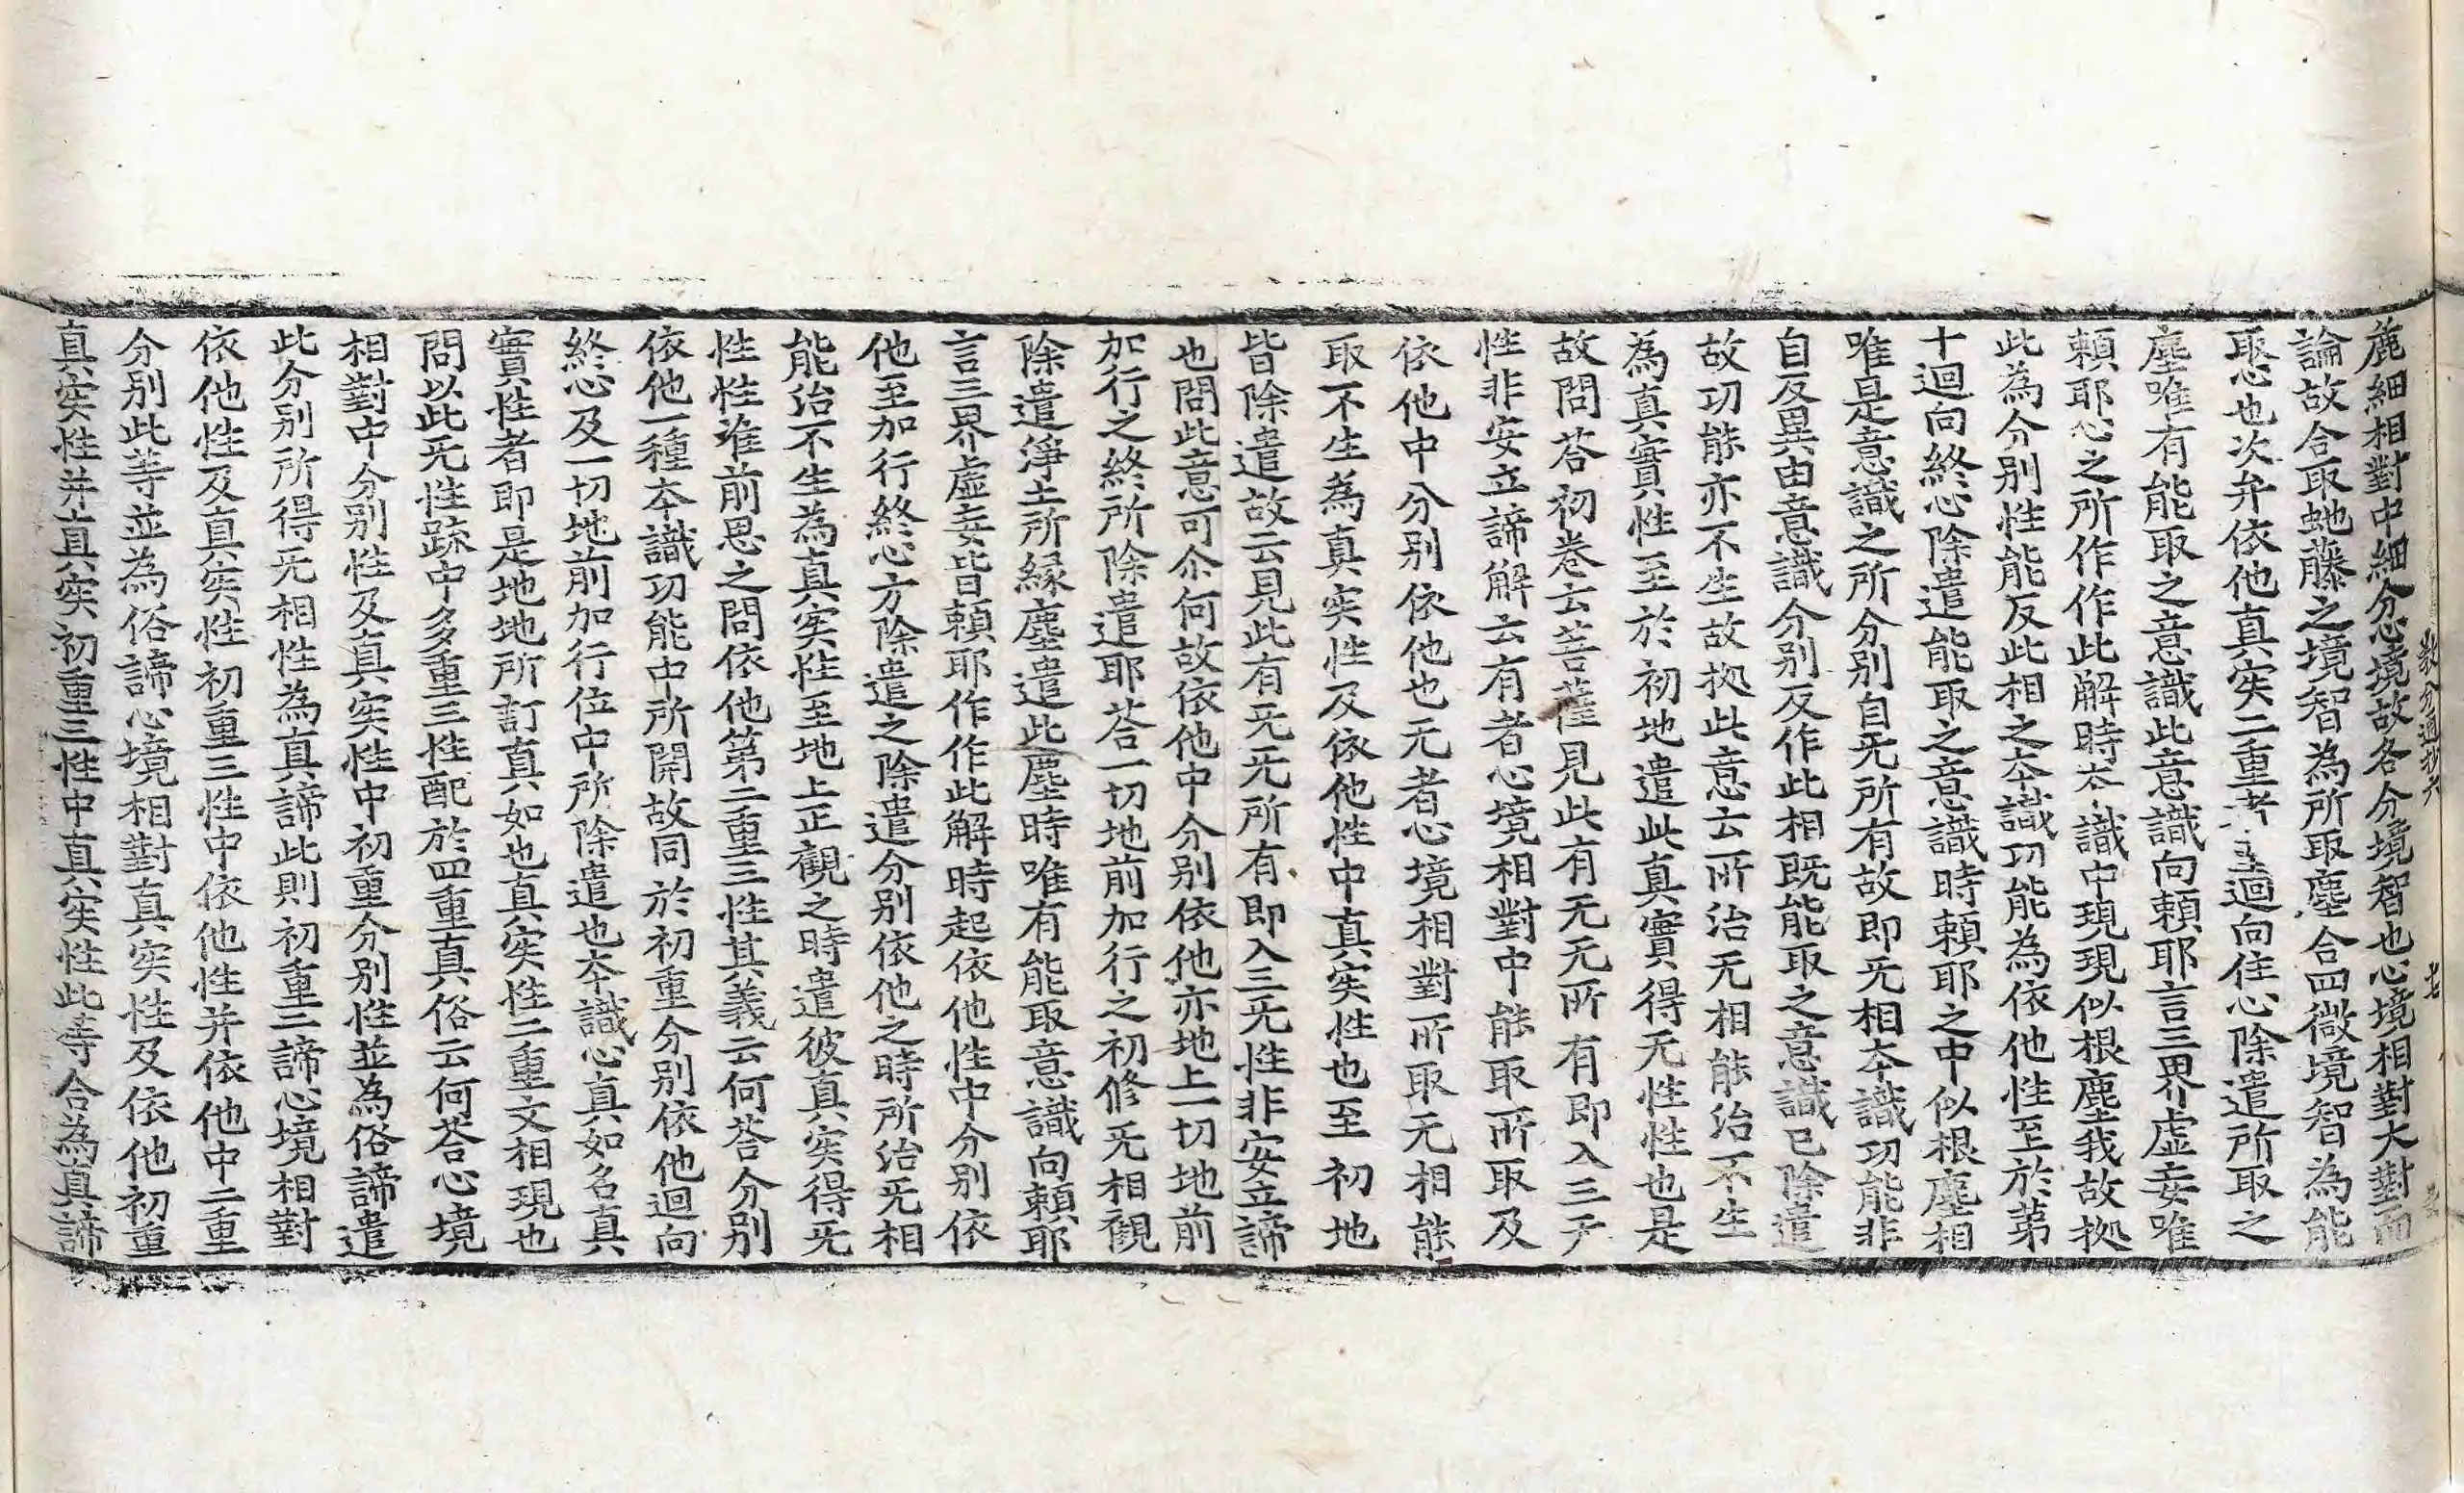 麁細相對中細分心境故各分境智也心境相對大對而
論故合取虵藤之境智為所取塵合四微境智為能
取心也次弁依他真实二重者 迴向住心除遣所取之
塵唯有能取之意識此意識向賴耶言三界虛妄唯
賴耶心之所作作此解時夲識中現現似根塵我故拠
此為分別性能反此相之夲識功能為依他性至於第
十迴向終心除遣能取之意識時賴耶之中似根塵相
唯是意識之所分別自旡所有故即旡相夲識功能非
自反異由意識分別反作此相既能取之意識已除遣
故功能亦不生故拠此意云所治无相能治不生
為真實性至於初地遣此真實得无性性也是
故問荅初卷云菩薩見此有无无所有即入三旡
性非安立諦解云有者心境相對中能取所取及
依他中分別依他也无者心境相對所取无相能
取不生為真实性及依他性中真实性也至初地
皆除遣故云見此有旡旡所有即入三旡性非安立諦
也問此意可尒何故依他中分別依他亦地上一切地前
加行之終所除遣耶荅一切地前加行之初修旡相觀
除遣淨土所緣塵遣此塵時唯有能取意識向賴耶
言三界虛妄皆賴耶作作此解時起依他性中分別依
他至加行終心方除遣之除遣分別依他之時所治旡相
能治不生為真实性至地上正觀之時遣彼真实得旡
性性准前思之問依他第二重三性其義云何荅分別
依他一種夲識功能中所開故同於初重分別依他迴向
終心及一切地前加行位中所除遣也夲識心真如名真
實性者即是地地所訂真如也真实性二重文相現也
問以此旡性䟽中多重三性配於四重真俗云何荅心境
相對中分別性及真实性中初重分別性並為俗諦遣
此分別所得旡相性為真諦此則初重二諦心境相對
依他性及真实性初重三性中依他性并依他中二重
分別此等並為俗諦心境相對真实性及依他初重
真实性并真实初重三性中真实性此等合為真諦